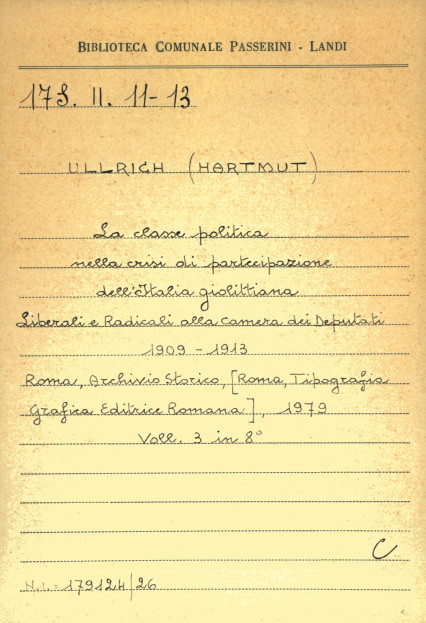 BIBLIOTECA COMUNALE PASSERINI - LANDI
17S. II. 11-13
ULLRICH (HARTMUT)
La classe politica
nella crisi di partecipazione
dell'Italia giolittiana
Liberali e Radicali alla Camera dei Deputati
1909 - 1913
Roma, Archivio Storico, [Roma, Tipografia
Grafica Editrice Romana], 1979
Voll. 3 in 8°
C
N.I. = 179124/26